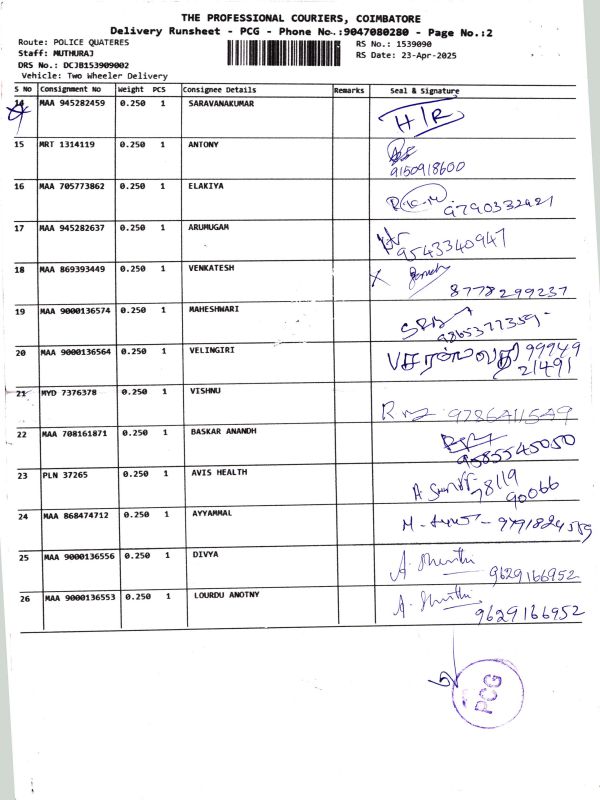 THE PROFESSIONAL COURIERS, COIMBATORE
Delivery Runsheet - PCG - Phone No.:9047080280 - Page No.:2
Route: POLICE QUATERES
RS No.: 1539090
Staff: MUTHURAJ
RS Date: 23-Apr-2025
DRS No.: DCJB153909002
Vehicle: Two Wheeler Delivery
S No Consignment No Weight PCS Consignee Details Remarks Seal & Signature
14 MAA 945282459 0.250 1 SARAVANAKUMAR H/R
15 MRT 1314119 0.250 1 ANTONY
9150918600
16 MAA 705773862 0.250 1 ELAKIYA 9790332421
17 MAA 945282637 0.250 1 ARUMUGAM
9543340947
18 MAA 869393449 0.250 1 VENKATESH
8778299237
19 MAA 9000136574 0.250 1 MAHESHWARI
9865377359
20 MAA 9000136564 0.250 1 VELINGIRI 99949
21491
21 MYD 7376378 0.250 1 VISHNU
9786411549
22 MAA 708161871 0.250 1 BASKAR ANANDH
9585545050
23 PLN 37265 0.250 1 AVIS HEALTH
78119
90066
24 MAA 868474712 0.250 1 AYYAMMAL
25 MAA 9000136556 0.250 1 DIVYA
9629166952
26 MAA 9000136553 0.250 1 LOURDU ANOTNY
9629166952
PCG